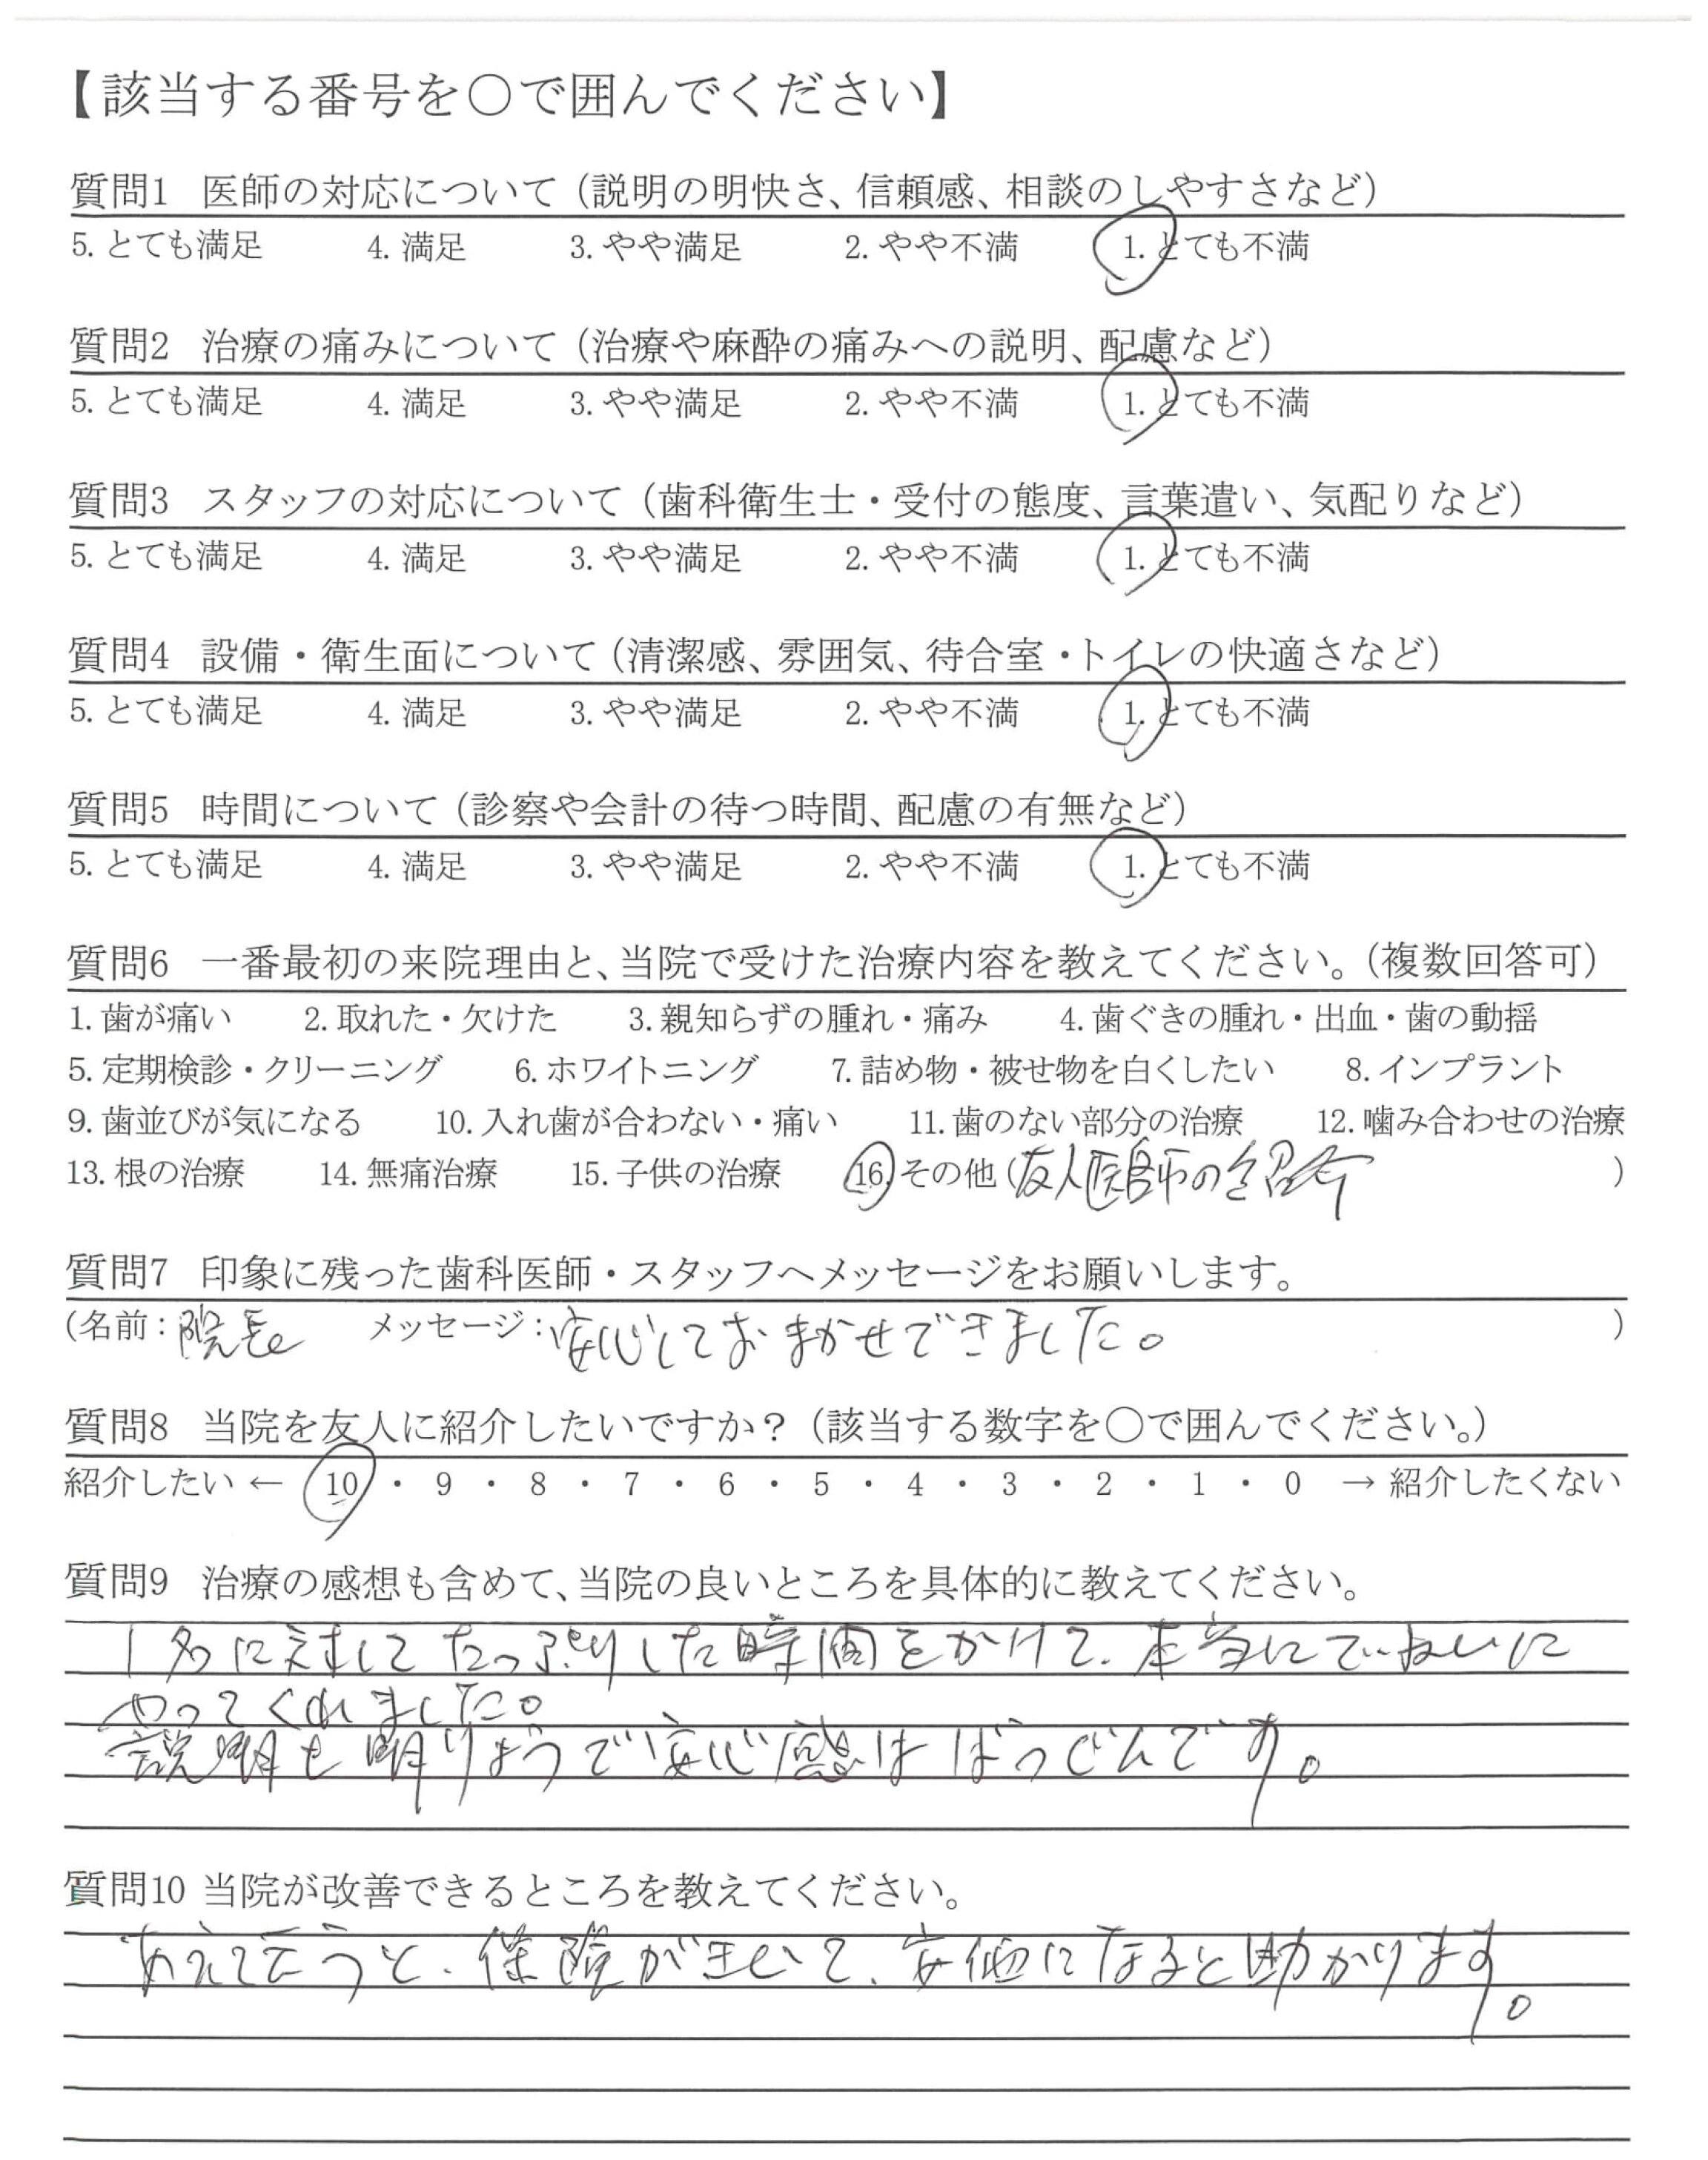 【該当する番号を〇で囲んでください】
質問1 医師の対応について（説明の明快さ、信頼感、相談のしやすさなど）
5. とても満足 4. 満足 3. やや満足 2. やや不満 1. とても不満
質問2 治療の痛みについて（治療や麻酔の痛みへの説明、配慮など）
5. とても満足 4. 満足 3. やや満足 2. やや不満 1. とても不満
質問3 スタッフの対応について（歯科衛生士・受付の態度、言葉遣い、気配りなど）
5. とても満足 4. 満足 3. やや満足 2. やや不満 1. とても不満
質問4 設備・衛生面について（清潔感、雰囲気、待合室・トイレの快適さなど）
5. とても満足 4. 満足 3. やや満足 2. やや不満 1. とても不満
質問5 時間について（診察や会計の待つ時間、配慮の有無など）
5. とても満足 4. 満足 3. やや満足 2. やや不満 1. とても不満
質問6 一番最初の来院理由と、当院で受けた治療内容を教えてください。（複数回答可）
1. 歯が痛い 2. 取れた・欠けた 3. 親知らずの腫れ・痛み 4. 歯ぐきの腫れ・出血・歯の動揺
5. 定期検診・クリーニング 6. ホワイトニング 7. 詰め物・被せ物を白くしたい 8. インプラント
9. 歯並びが気になる 10. 入れ歯が合わない・痛い 11. 歯のない部分の治療 12. 噛み合わせの治療
13. 根の治療 14. 無痛治療 15. 子供の治療 16. その他（友人医師の紹介）
質問7 印象に残った歯科医師・スタッフへメッセージをお願いします。
（名前：院長 メッセージ：安心しておまかせできました。）
質問8 当院を友人に紹介したいですか？（該当する数字を〇で囲んでください。）
紹介したい ← 10 ・ 9 ・ 8 ・ 7 ・ 6 ・ 5 ・ 4 ・ 3 ・ 2 ・ 1 ・ 0 → 紹介したくない
質問9 治療の感想も含めて、当院の良いところを具体的に教えてください。
1名に対してたっぷりした時間をかけて、本当にていねいに
やってくれました。
説明も明りょうで安心感はばつぐんです。
質問10 当院が改善できるところを教えてください。
あえて言うと、保険がきいて、安価になると助かります。